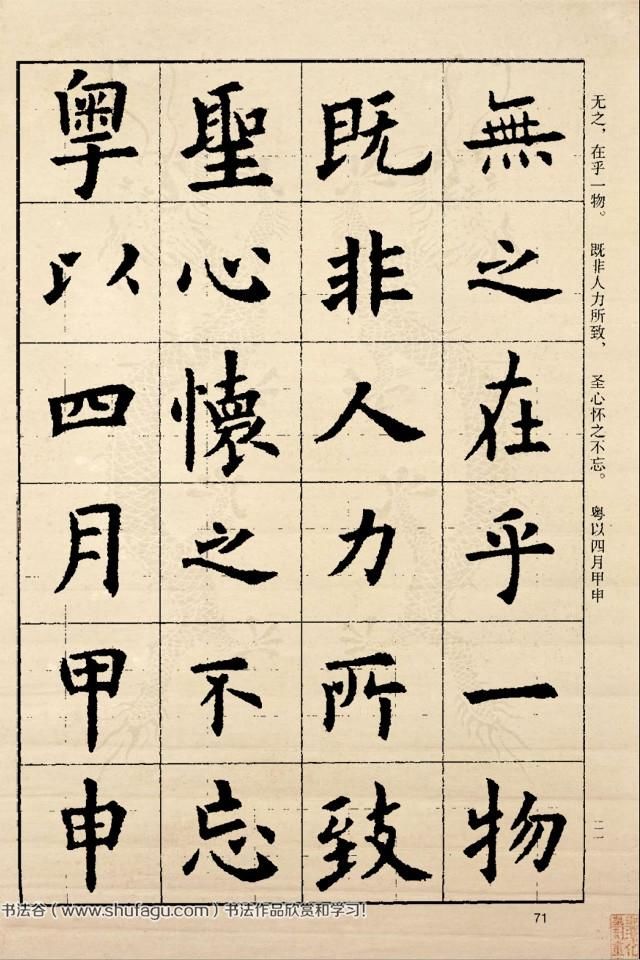 無之在乎一物
既非人力所致
聖心懷之不忘
粵以四月甲申
无之，在乎一物。 既非人力所致， 圣心怀之不忘。 粤以四月甲申
二一
71
书法谷（www.shufagu.com）书法作品欣赏和学习！